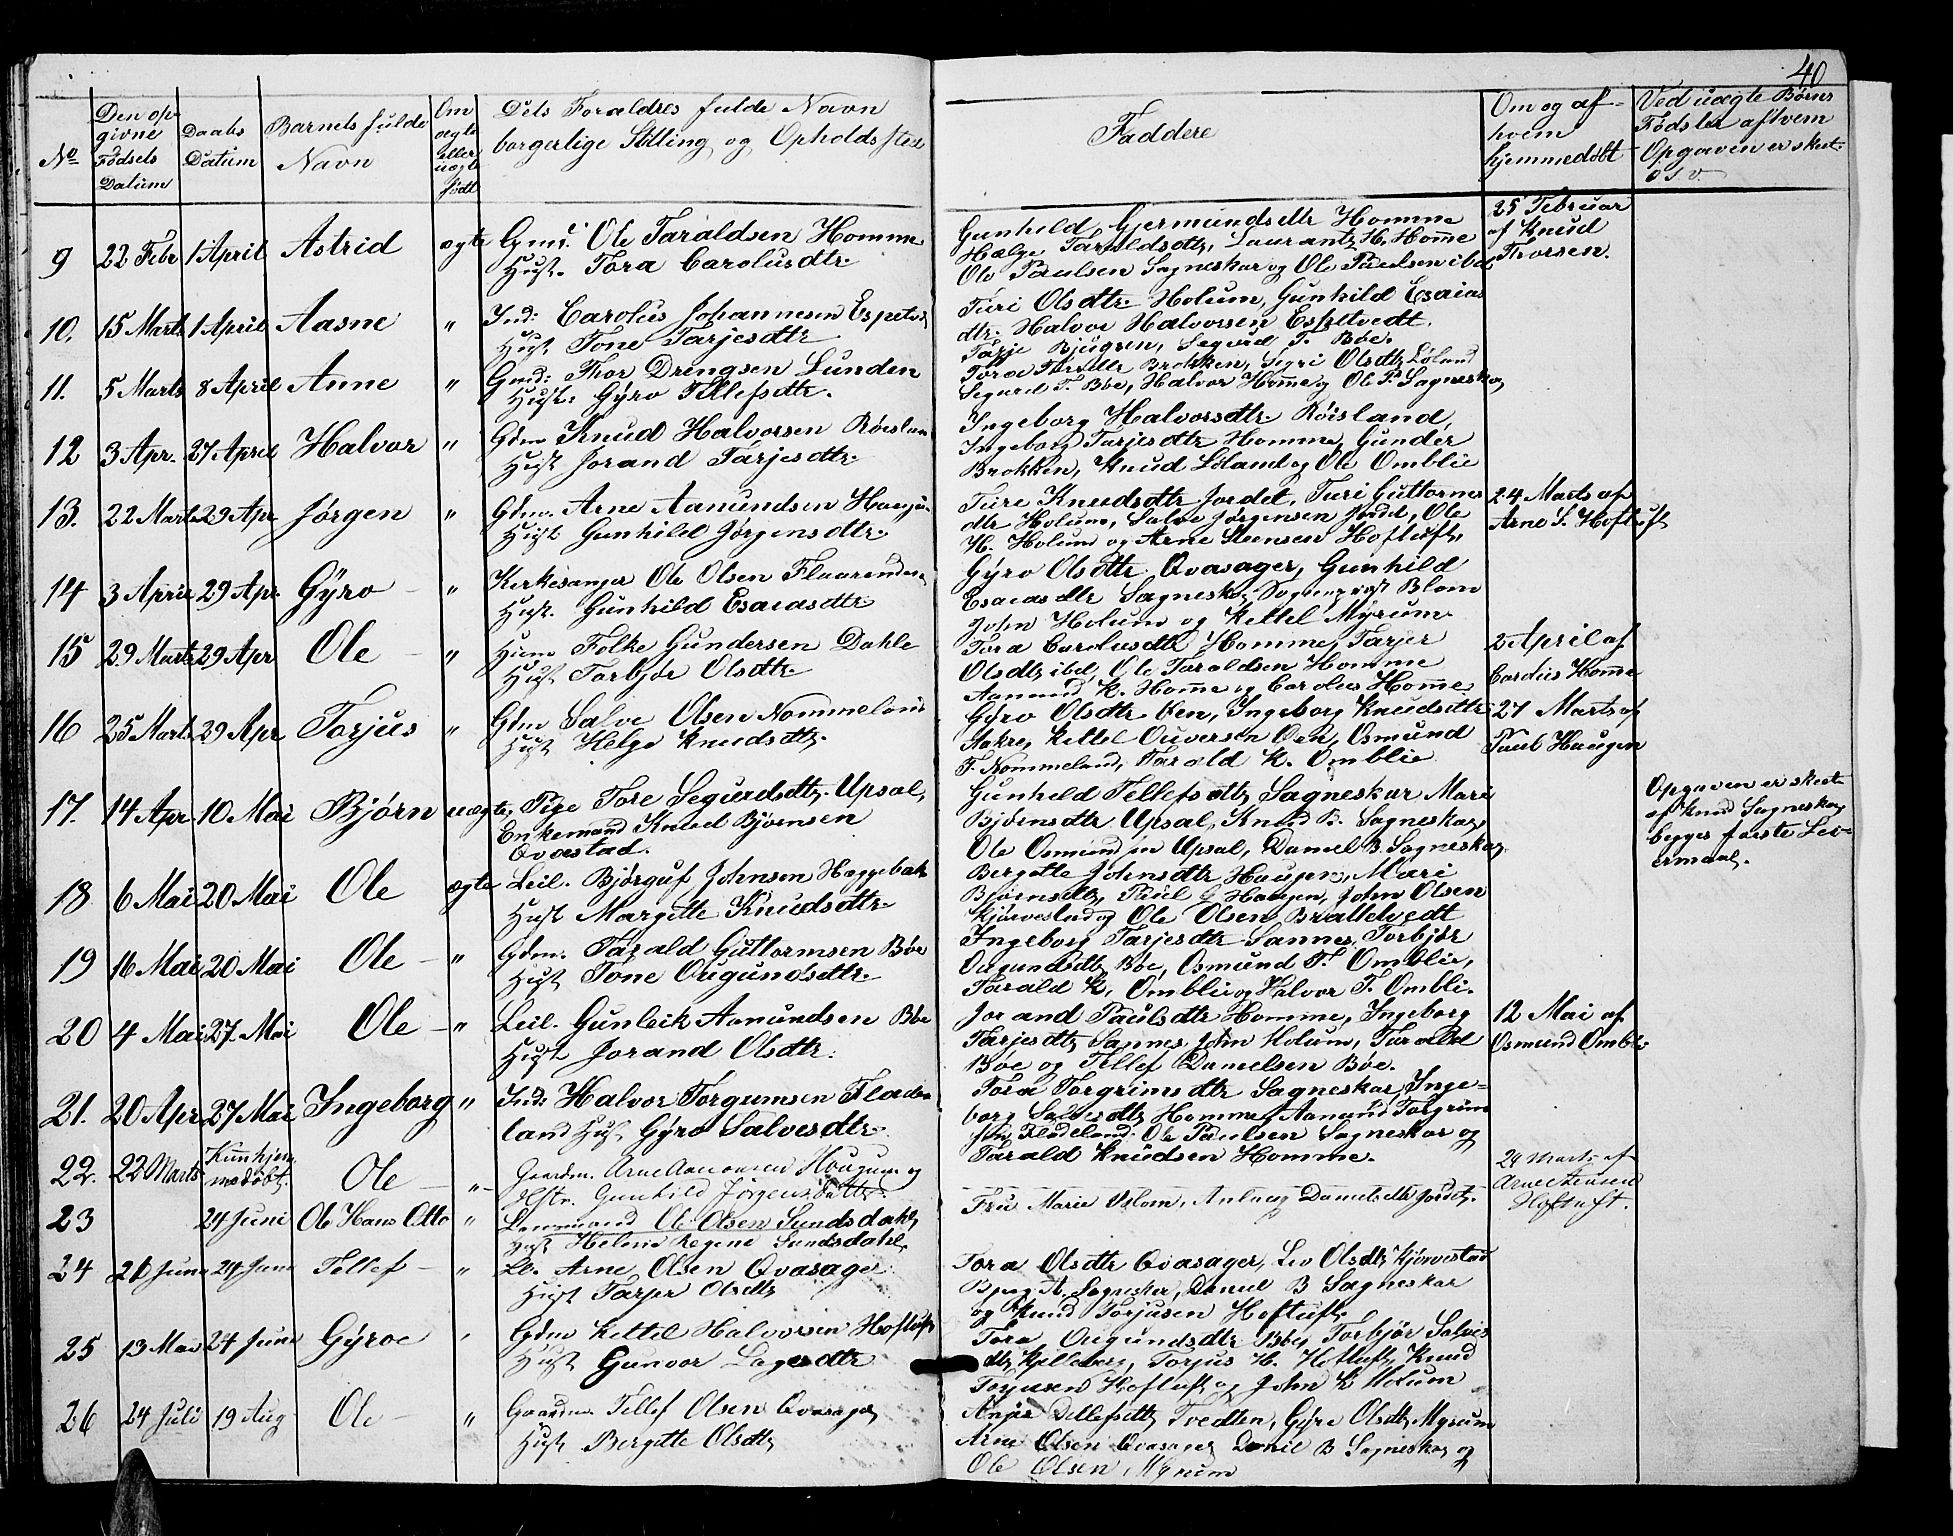 40
Den op-
givne
Fødsels
Datum
No
Daabs
Datum
Barnets fulde
Navn
Om
ægte
eller
uægte
født
Dets Forældres fulde Navn
borgerlige Stilling og Opholdssted
Faddere
Om og af
hvem
hjemmedøbt
Ved uægte Børns
Fødsler af hvem
Opgaven er skeet
o s v.
9 22 Febr 1 April Astrid ægte Gmd. Ole Taraldsen Homme
Hust. Tora Carolusdtr.
Gunhild Gjermundsdtr Homme
Hælge Taraldsdtr, Laurantz H. Homme
Ole Paulsen Sagneskar og Ole Paulsen ibd
25 Februar
af Knud
Trorsen.
10. 15 Marts 1 April Aasne " Ind: Carolus Johannesen Espetv
Hust. Tone Tarjesdtr
Turi Olsdtr. Holum, Gunhild Esaias
dtr. Halvor Halvorsen Espetvedt.
Tarje Bjugsen, Segurd T. Bøe.
11. 5 Marts 8 April Anne " Gmd: Thor Drengsen Lunden
Hust. Gyro Tellefsdtr.
Brokken, Sigri Olsdtr Løland
Segurd T. Bøe, Halvor Homme og Ole P. Sagneskar
12 3 Apr. 27 April Halvor " Gdm Knud Halvorsen Røislan
Hust Jorand Tarjesdtr.
Ingeborg Halvorsdtr. Røisland,
Ingeborg Tarjesdtr Homme, Gunder
Brokken, Knud Løland og Ole Omblie
13. 22 Marts 29 Apr Jørgen " Gdm. Arne Aanundsen Haugu
Hust Gunhild Jørgensdtr.
Ture Knudsdtr Jordet, Turi Guttorms
dtr Holum, Salve Jørgensen Jordet, Ole
H. Holum og Arne Steensen Hoftuft,
24 Marts af
Arne S. Hoftuft
14 3 April 29 Apr. Gÿro " Kirkesanger Ole Olsen Flaarenden
Hust. Gunhild Esaiasdtr
Gÿro Olsdtr Qvasager, Gunhild
Esaiasdtr Sagneskar, Sogneprest Blom
John Holum og Kettel Mÿrum.
15 29 Marts 29 Apr Ole " Huum Folke Gundersen Dahle
Hust Torbjør Olsdtr.
Tora Carolusdtr Homme, Tarjer
Olsdtr ibd, Ole Taraldsen Homme
Aanund K. Homme og Carolus Homme
2 April af
Carolus Homme
16 25 Marts 29 Apr Torjus " Gdm Salve Olsen Nommeland
Hust Helge Knudsdtr.
Gÿro Olsdtr Uen, Ingeborg Knudsdtr
Aakre, Kettel Ouversen Uen, Osmund
T. Nommeland, Tarald K. Omblie
27 Marts af
Paul Haugen
17. 14 Apr 10 Mai Bjørn uægte Pige Tore Segurdsdtr. Upsal,
Enkemand Knud Bjørnsen
Qvæstad.
Gunhild Tellefsdtr Sagneskar Mari
Bjørnsdtr Upsal, Knud B. Sagneskar,
Ole Osmundsen Upsal, Daniel B. Sagneskar
Opgaven er skeet
af Knud Sagneskar
begges første Lei-
ermaal.
18 6 Mai 20 Mai Ole ægte Leil. Bjørguf Johnsen Heggebak
Hust Margitte Knudsdtr.
Bergitte Johnsdtr Haugen, Mari
Bjørnsdtr, Paul G Haugen, John Olsen
Kjørvestad og Ole Olsen Brattetvedt
19 16 Mai 20 Mai Ole " Gdm. Tarald Guttormsen Bøe
Hust Tone Ougundsdtr.
Ingeborg Tarjesdtr Sannes, Torbjør
Ougundsdtr Bøe, Osmund T. Omblie,
Tarald K. Omblie og Halvor T. Ombli.
20 4 Mai 27. Mai Ole " Leil. Gunleik Aanundsen Bøe
Hust Jorand Olsdtr.
Jorand Paulsdtr Homme, Ingeborg
Tarjesdtr Sannes, John Holum, Tarald
Bøe og Tellef Danielsen Bøe.
12 Mai af
Osmund Ombli
21. 20 Apr 27 Mai Ingeborg " Ind: Halvor Torgrimsen Flade
land Hust Gÿro Salvesdtr.
Tora Torgrimsdtr Sagneskar, Inge-
borg Salvesdtr Homme, Aanund Torgrim
sen Fladeland. Ole Paulsen Sagneskar og
Tarald Knudsen Homme.
22. 22 Marts Kun hjem
medøbt. Ole " Gaardm. Arne Aanonsen Haugum og
Hstr. Gunhild Jørgensdatter
24 Marts af
Arne Steensen
Hoftuft.
23 24 Juni Ole Hans Otto " Lensmand Ole Olsen Sundsdahl,
Hust Helene Regine Sundsdahl.
Fru Marie Uslom, Aslaug Danielsdtr Jordet.
24 21 Juni 24 Juni Tellef " Le. Arne Olsen Qvasager
Hust Tarjer Olsdtr
Tora Olsdtr Qvasager, Liv Olsdtr Kjørvestad
Sagneskar, Daniel B Sagneskar
og Knud Torjusen Hoftuft.
25 13 Mai 24 Juni Gÿroe " Gdm Kettel Halvorsen Hoftuft
Hust Gunvor Lagesdtr
Tora Ougundsdtr Bøe, Torbjør Salves
dtr Kjelleberg, Torjus H. Hoftuft, Knud
Torjusen Hoftuft og John K Holum
26 24 Juli 19 Aug Ole " Gaardm. Tellef Olsen Qvasager
Hust Bergitte Olsdtr
Anjer Tellefsdtr Tvedten, Gyro Olsdtr Myrum
Arne Olsen Qvasager, Daniel B Sagneskar og
Ole Olsen Myrum